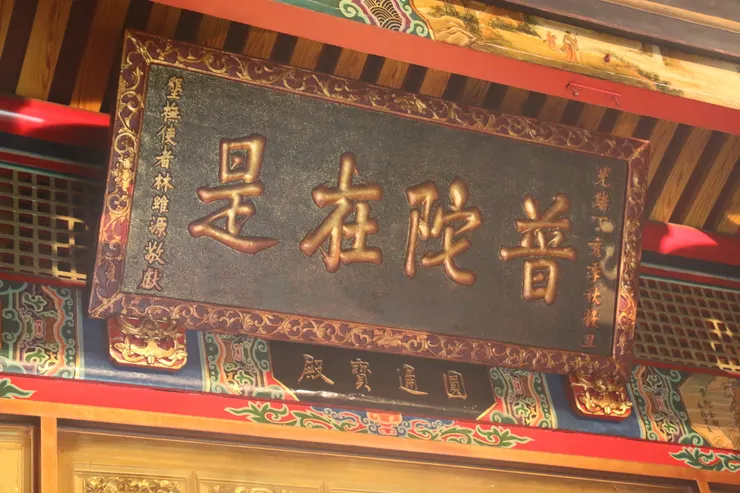 光緒丁亥 穀旦
普陀在是
墾撫使者林維源敬獻
圓通寶殿